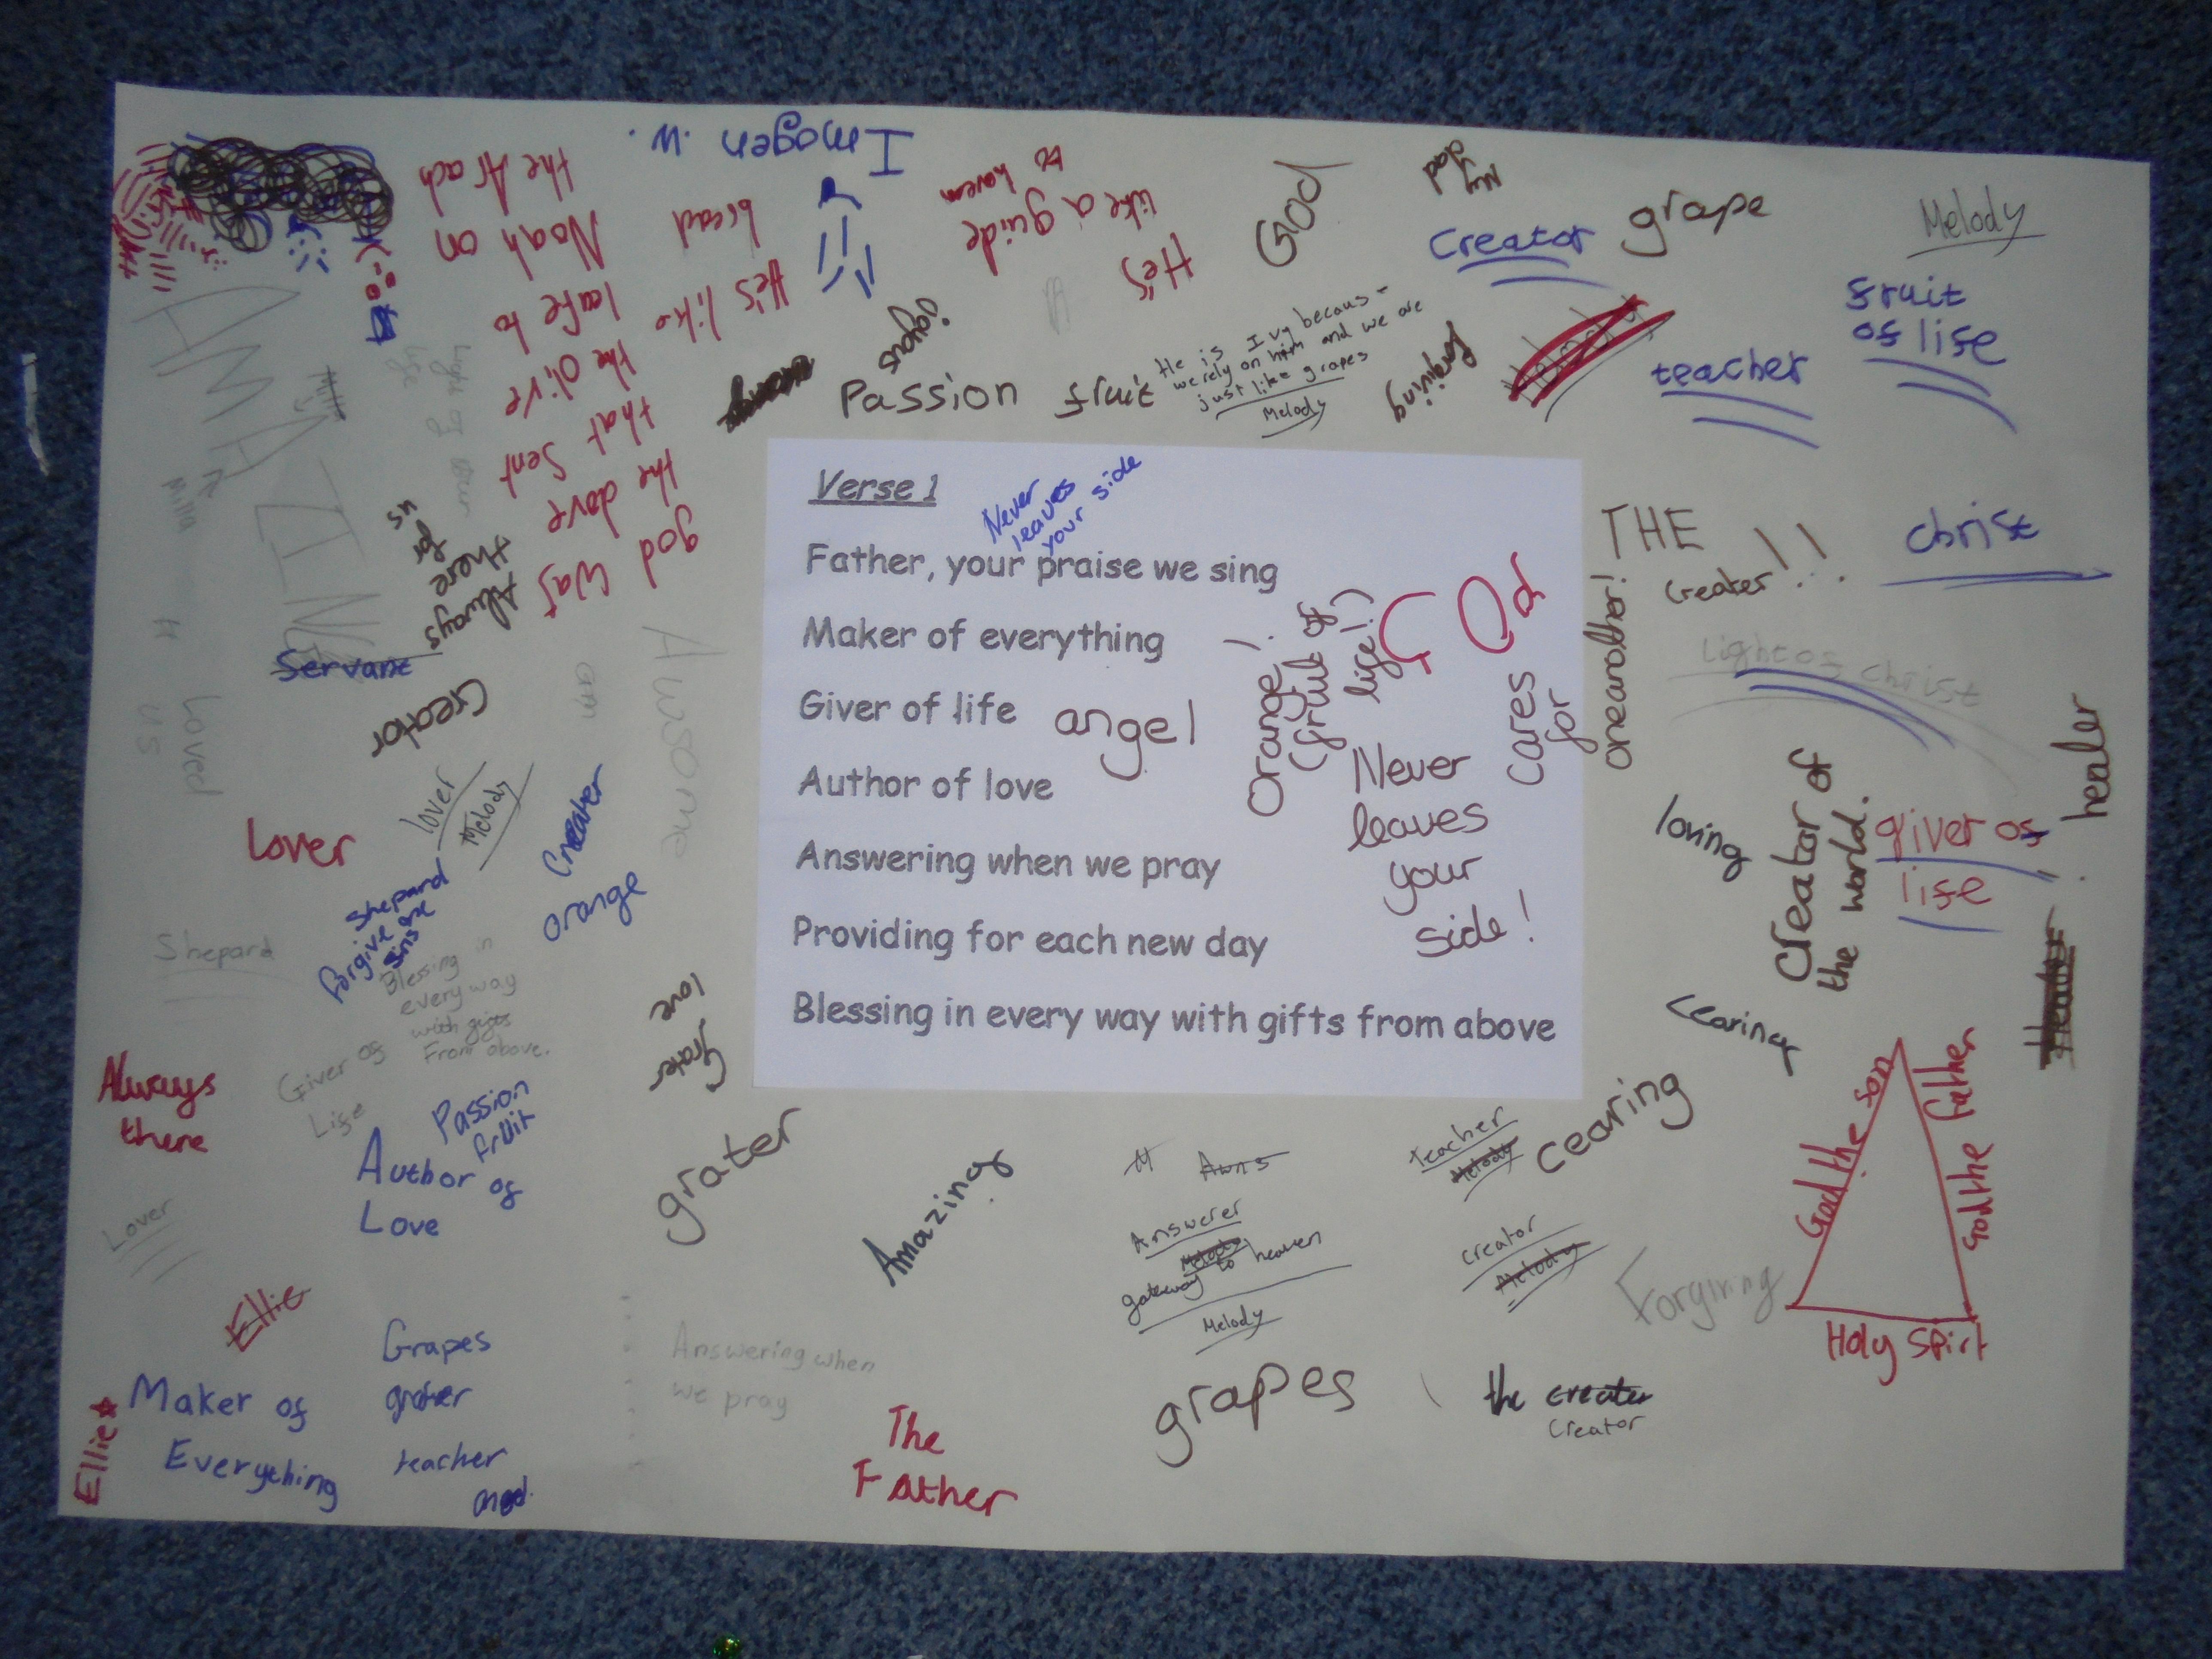 Imogen. W.
god was
the dove
that sent
the olive
leafe to
Noah on
the Arach
He's like
bread
He's
like a guide
to havern
God
My
dad
Creator
grape
Melody
fruit
of life
teacher
joyous
Passion fruit
He is Ivy becaus-
we rely on him and we are
just like grapes
Melody
forgiving
AMAZING
Light of
life
Always
there
for
us
Servant
Creator
Awsome
am
Loved
us
Milla
Verse 1
Never
leaves
your side
Father, your praise we sing
Maker of everything
Giver of life
Author of love
Answering when we pray
Providing for each new day
Blessing in every way with gifts from above
angel
Orange!
(fruit of
life!)
GOd
Never
leaves
your
side!
cares
for
oneanother!
THE
creater!!!
christ
Light of christ
healer
loving
Creator of
the world.
giver of
life
Healer
cearing
cearing
God the son
God the father
Holy Spirt
lover
Melody
Lover
Creater
orange
Shepard
forgive are
sins
Shepard
Blessing in
every way
with gifts
From above.
Giver of
Life
Always
there
Passion
fruit
Author of
Love
Grater
love
grater
Amazing
Lover
Ellie
Ellie
Maker of
Everything
Grapes
grater
teacher
Answering when
we pray
The
Father
M Awns
Answerer
Melody
gateway to heaven
Melody
Teacher
Melody
creator
Melody
Forgiving
grapes
the creater
Creator